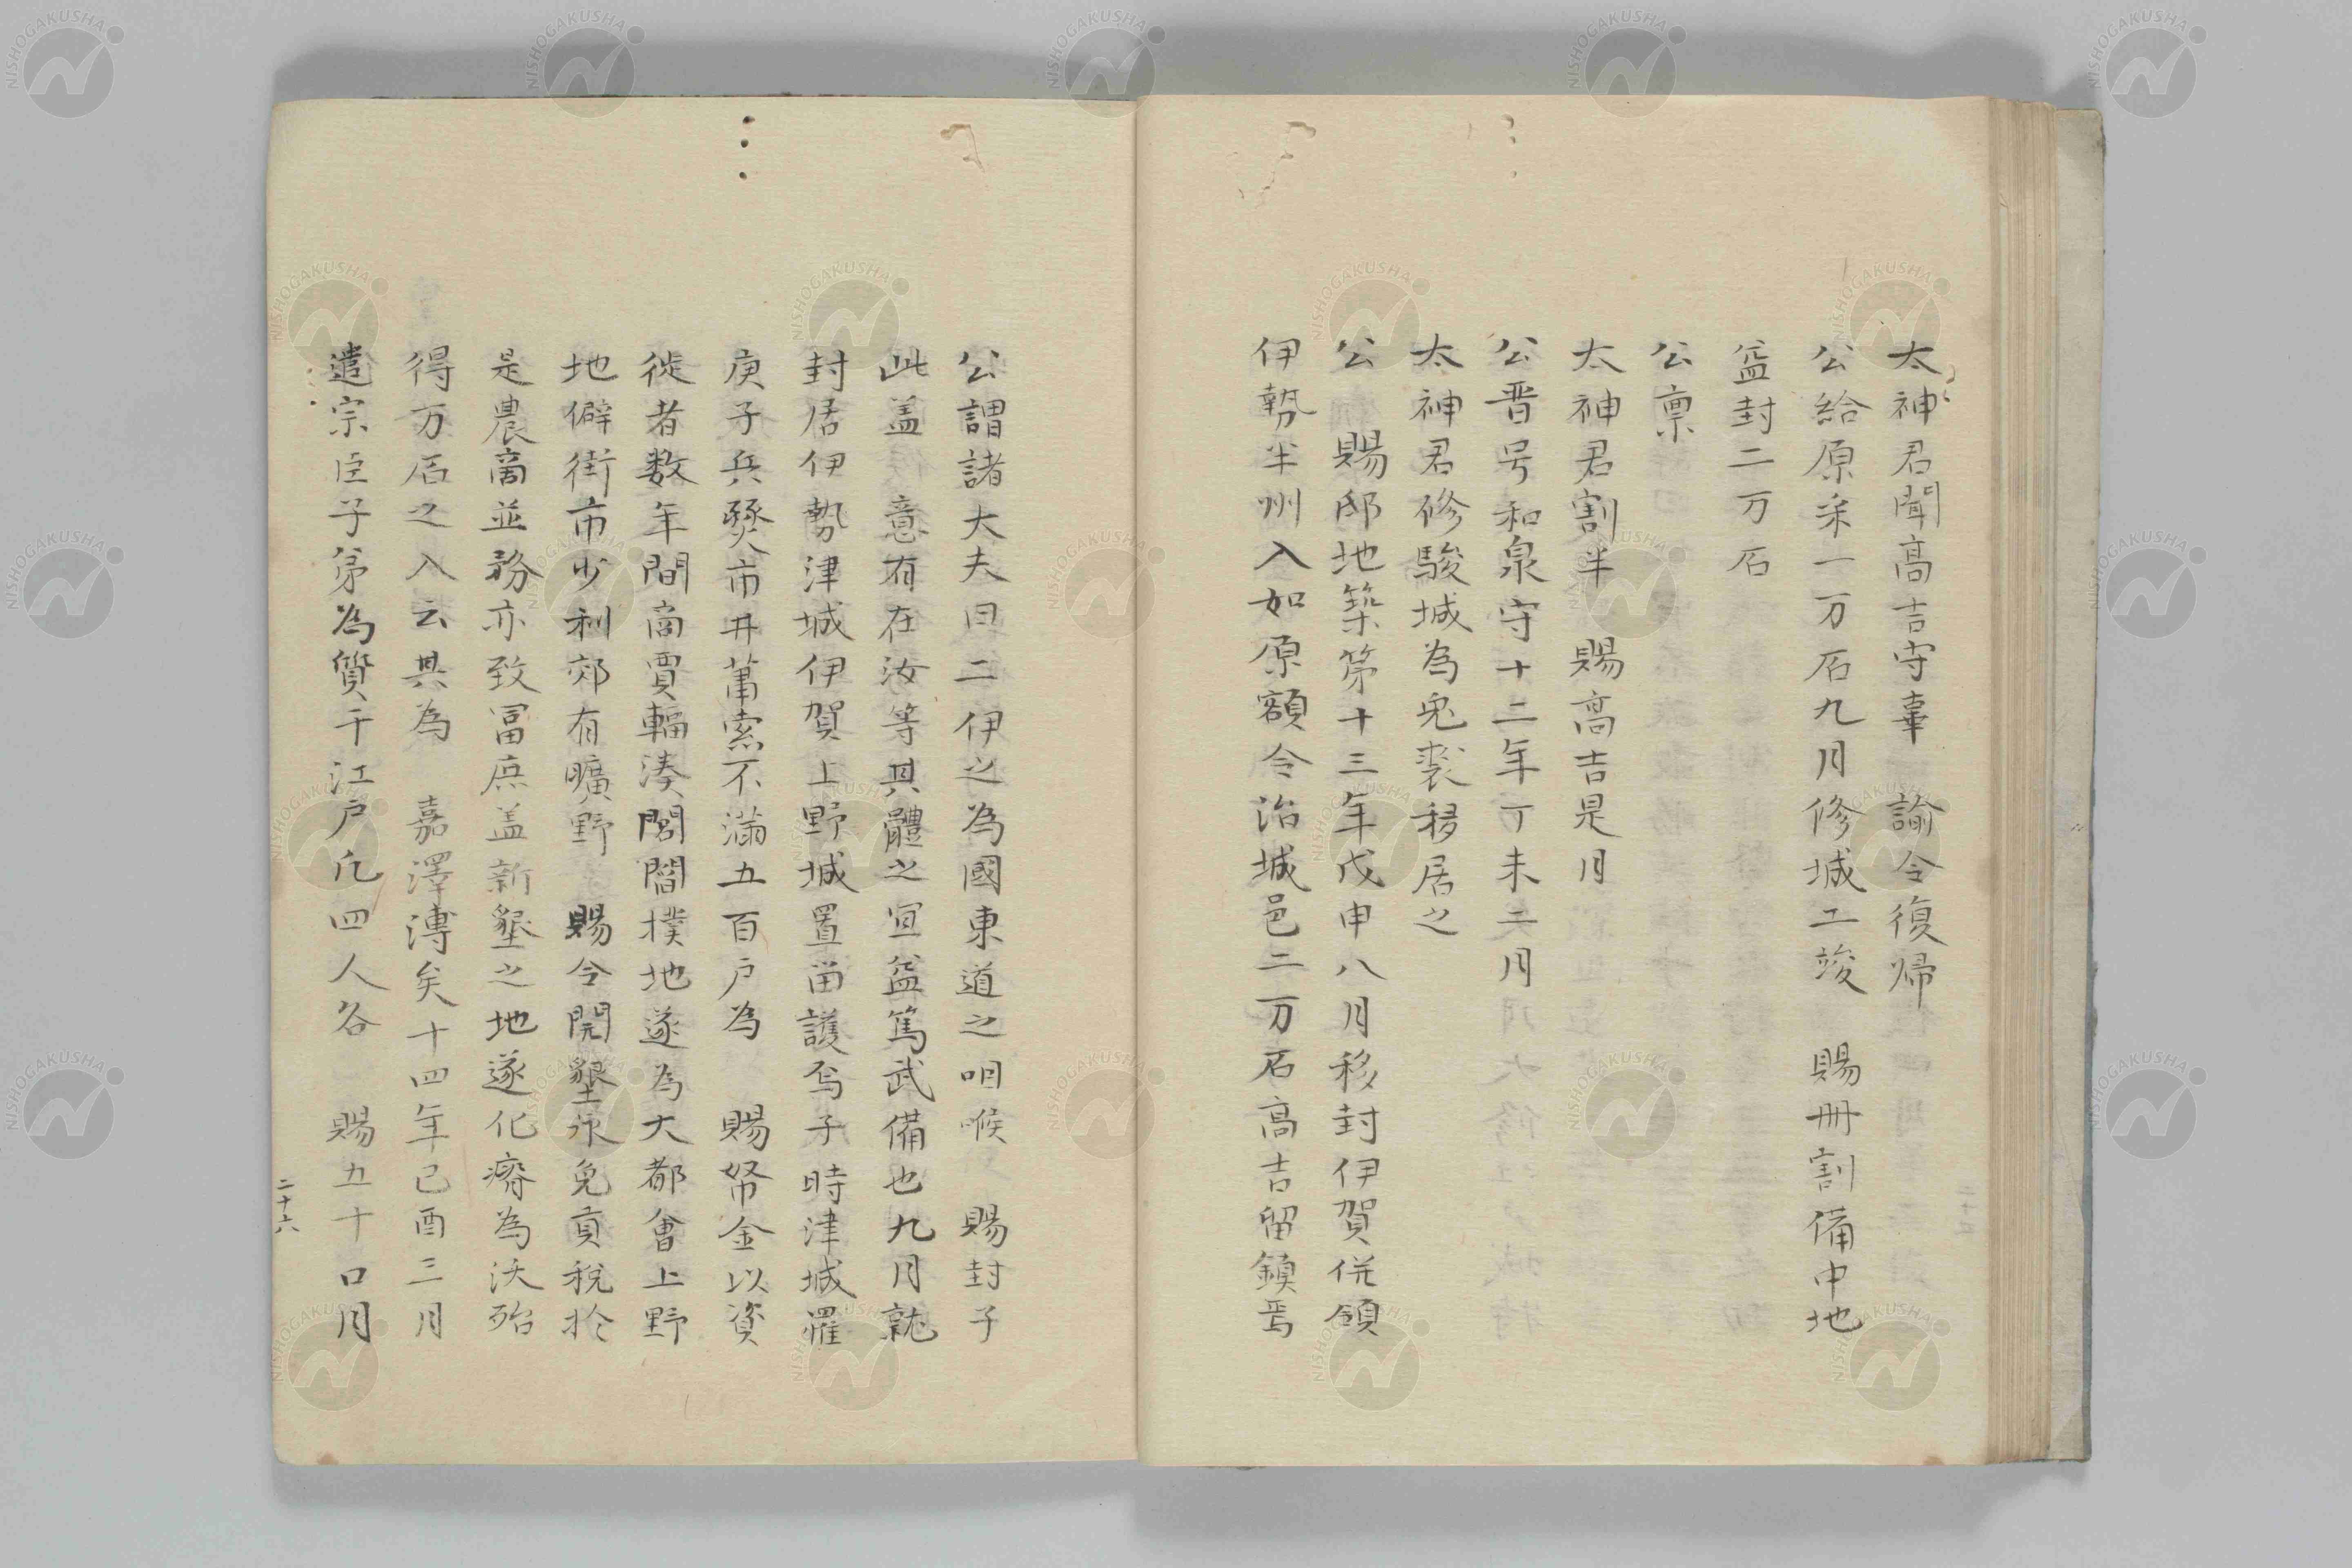 太神君聞高吉守辜　諭令復帰
公給原采一万石九月修城工竣　賜冊割備中地
益封二万石
公禀
太神君割半　賜高吉是月
公晋号和泉守十二年丁未二月
太神君修駿城為兎裘移居之
公　賜邸地築第十三年戊申八月移封伊賀併領
伊勢半州入如原額令治城邑二万石高吉留鎮焉
公謂諸大夫曰二伊之為國東道之咽喉　賜封予
此盖　意有在汝等具體之宜益篤武備也九月就
封居伊勢津城伊賀上野城置留護焉于時津城罹
庚子兵燹市井蕭索不滿五百戸為　賜帑金以資
徙者数年間商賈輻湊閭閻撲地遂為大都會上野
地僻街市少利郊有曠野　賜令開墾永免貢税於
是農商並務亦致冨庶盖新墾之地遂化瘠為沃殆
得万石之入云其為　嘉澤溥矣十四年己酉三月
遣宗臣子弟為質于江戸凢四人各　賜五十口月
二十六
NISHOGAKUSHA